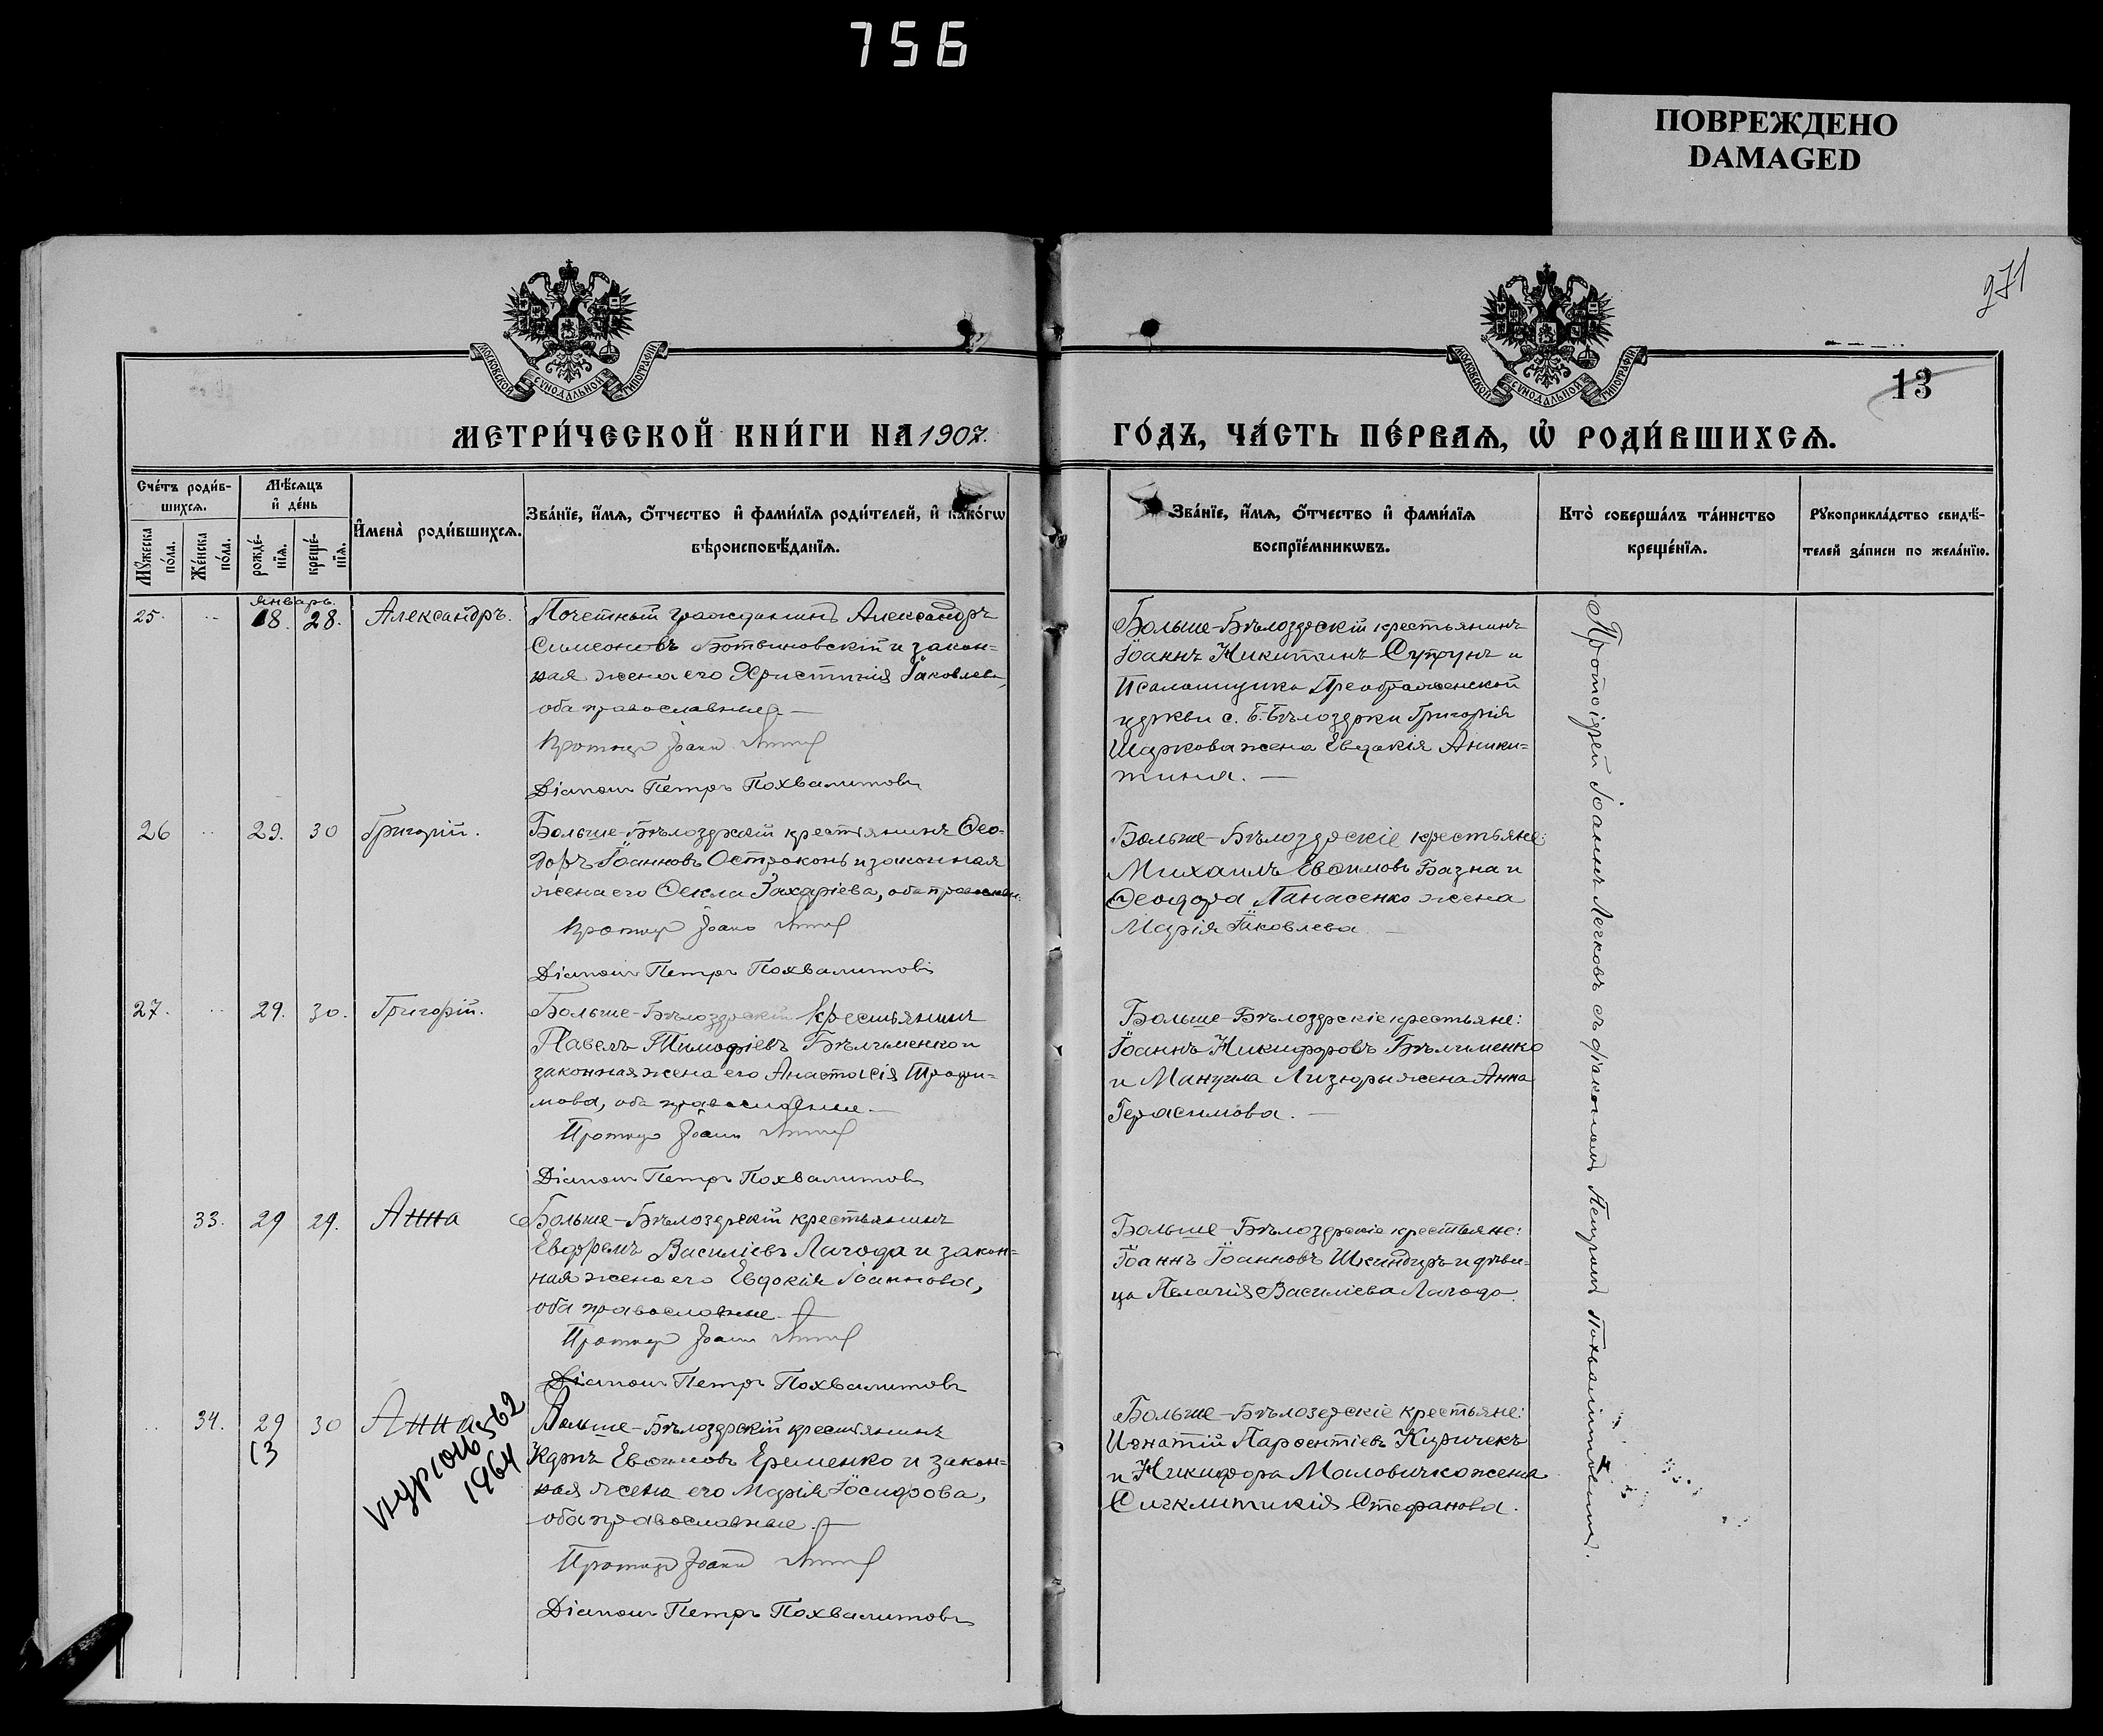 756
ПОВРЕЖДЕНО
DAMAGED
271
МОСКОВСКОЙ СѴНОДАЛЬНОЙ ТИПОГРАФІИ
МОСКОВСКОЙ СѴНОДАЛЬНОЙ ТИПОГРАФІИ
13
МЕТРИ́ЧЕСКОЙ КНИ́ГИ НА 1907.
ГО́ДЪ, ЧА́СТЬ ПЕ́РВАѦ, Ѡ҆ РОДИ́ВШИХСѦ.
Сче́тъ роди́в-
шихсѧ.
Мꙋжеска по́ла.
Же́нска по́ла.
Мѣ́сѧцъ
и҆ де́нь
рожде́-
нїѧ.
креще́-
нїѧ.
И҆мена̀ роди́вшихсѧ.
Зва́нїе, и҆́мѧ, ѻ҆́тчество и҆ фами́лїѧ роди́телей, и҆ како́гѡ
вѣроисповѣ́данїѧ.
Зва́нїе, и҆́мѧ, ѻ҆́тчество и҆ фами́лїѧ
воспрїе́мникѡвъ.
Кто̀ соверша́лъ та́инство
креще́нїѧ.
Рꙋкоприкла́дство свидѣ́-
телей за́писи по жела́нїю.
январь.
25. 18. 28. Александръ.
Почетный гражданинъ Александръ
Симеоновъ Ботвиновскій и закон-
ная жена его Христинія Іаковлева,
оба православные
Іоанн
Діаконъ Петръ Похвалитовъ
Больше-Бѣлозерскій крестьянинъ
Іоаннъ Никитинъ Супрунъ и
Псаломщика Преображенской
церкви с. Б.-Бѣлозерки Григорія
Шаркова жена Евдокія Аники-
тина.
26 29. 30 Григорій.
Больше-Бѣлозерскій крестьянинъ Ѳео-
доръ Іоанновъ Остроконь и законная
жена его Ѳекла Захаріева, оба православн.
Іоанн
Діаконъ Петръ Похвалитовъ
Больше-Бѣлозерскіе крестьяне:
Михаилъ Евѳимовъ Базна и
Ѳеодора Панасенко жена
Марія Іаковлева.
27. 29. 30. Григорій.
Больше-Бѣлозерскій крестьянинъ
Павелъ Тимоѳіевъ Бѣлименко и
законная жена его Анастасія Трофи-
мова, оба православные.
Іоанн
Діаконъ Петръ Похвалитовъ
Больше-Бѣлозерскіе крестьяне:
Іоаннъ Никифоровъ Бѣлименко
и Мануила Лизюры жена Анна
Герасимова.
33. 29 29. Анна
Больше-Бѣлозерскій крестьянинъ
Евфремъ Василіевъ Лагода и закон-
ная жена его Евдокія Іоаннова,
оба православные.
Іоанн
Діаконъ Петръ Похвалитовъ
Больше-Бѣлозерскіе крестьяне:
Іоаннъ Іоанновъ Шкиндиръ и дѣви-
ца Пелагія Василіева Лагода.
34. 29 30 Анна
13
1964
Больше-Бѣлозерскій крестьянинъ
Карпъ Евѳимовъ Еременко и закон-
ная жена его Марія Іосифова,
оба православные.
Іоанн
Діаконъ Петръ Похвалитовъ
Больше-Бѣлозерскіе крестьяне:
Игнатій Парѳентіевъ Киричекъ
и Никифора Маловичко жена
Сигклитикія Стефанова.
Протоіерей Іоаннъ Легковъ съ діакономъ Петромъ Похвалитовымъ.